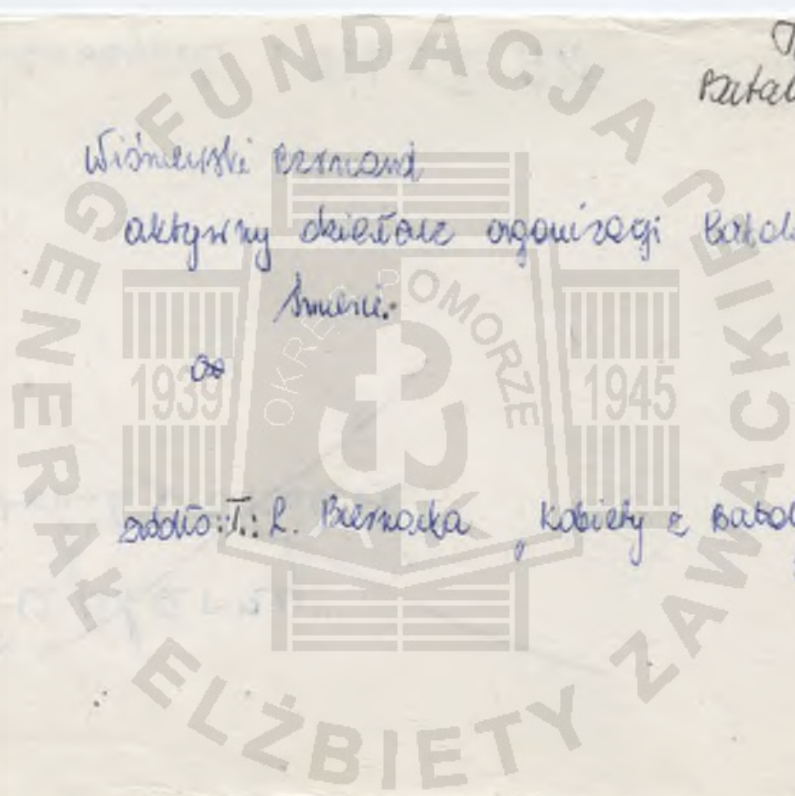 Batal
Wiśniewski Bernard
aktywny działacz organizacji Batal
Śmierci.
źródło: T.: R. Biernacka "Kobiety z Batal
FUNDACJA
GENERAŁ ELŻBIETY ZAWACKIEJ
OKRĘG POMORZE
1939
1945
AK